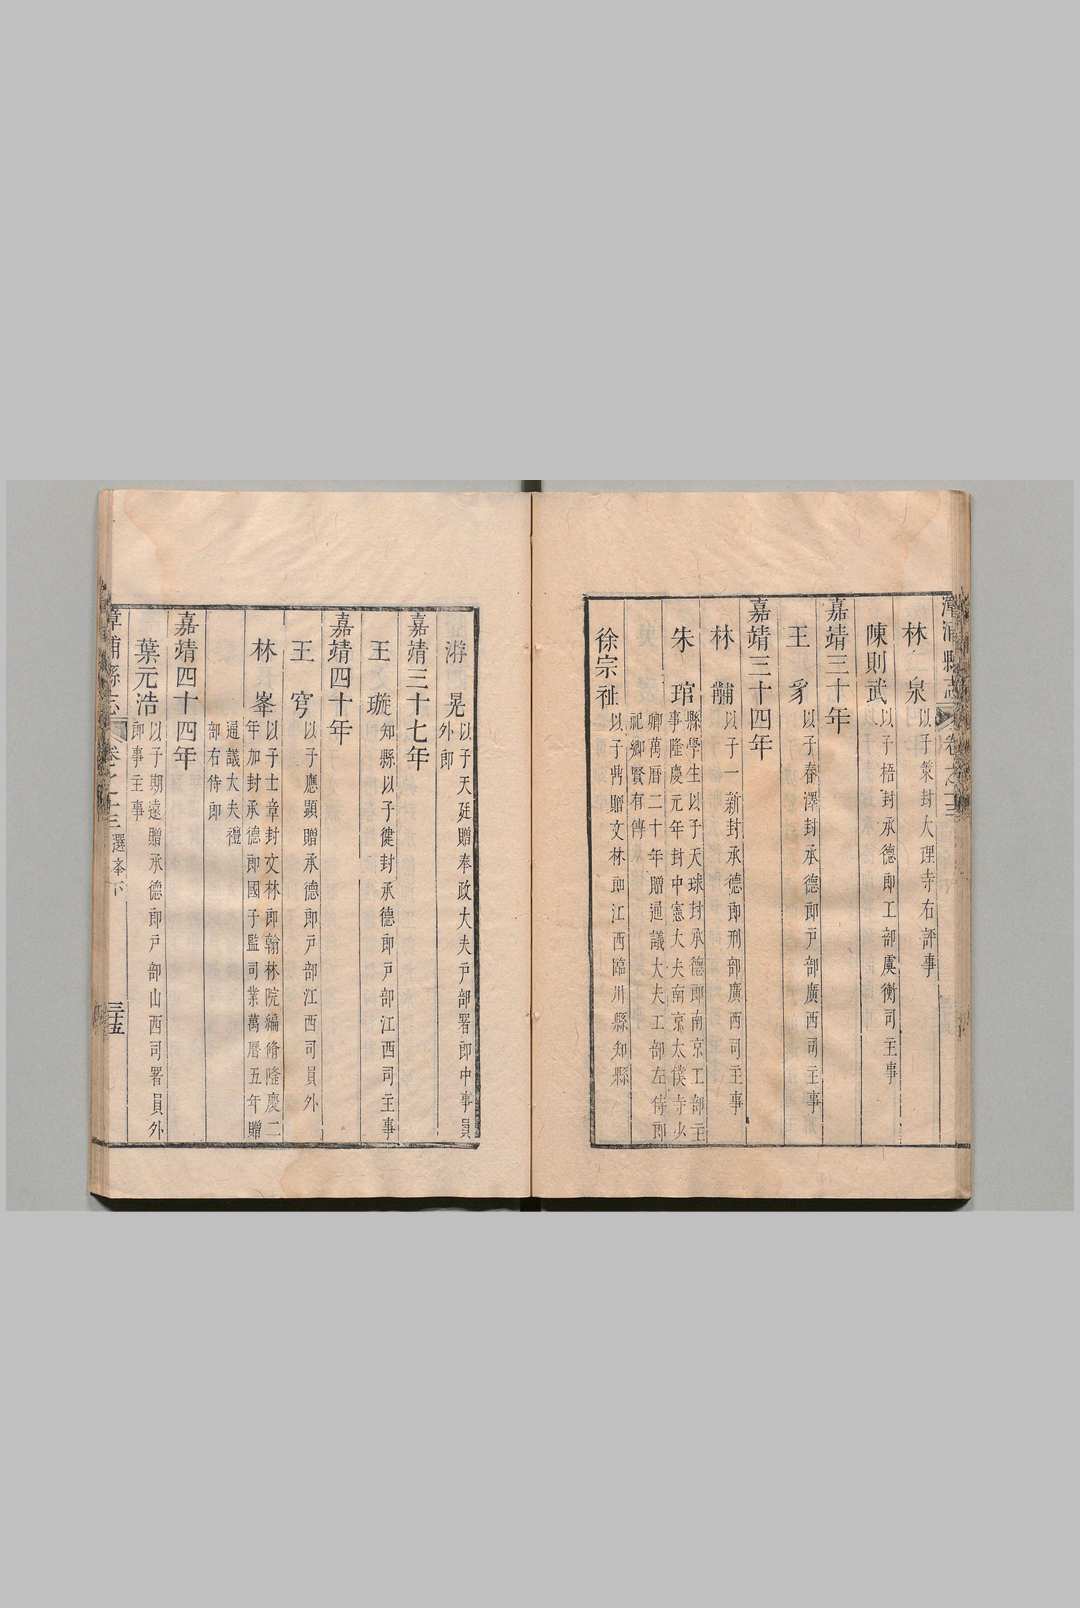 漳浦縣志 卷之十三
林泉 以子策封大理寺右評事
陳則武 以子梧封承德郎工部虞衡司主事
嘉靖三十年
王豸 以子春澤封承德郎戶部廣西司主事
嘉靖三十四年
林黼 以子一新封承德郎刑部廣西司主事
朱琯 縣學生以子天球封承德郎南京工部主
事隆慶元年封中憲大夫南京太僕寺少
卿萬曆二十年贈通議大夫工部左侍郎
祀鄉賢有傳
徐宗祉 以子鼎贈文林郎江西臨川縣知縣
游晃 以子天廷贈奉政大夫戶部署郎中事員
外郎
嘉靖三十七年
王璇 知縣以子健封承德郎戶部江西司主事
嘉靖四十年
王穹 以子應顯贈承德郎戶部江西司員外
林峯 以子士章封文林郎翰林院編脩隆慶二
年加封承德郎國子監司業萬曆五年贈
通議大夫禮
部右侍郎
嘉靖四十四年
葉元浩 以子期遠贈承德郎戶部山西司署員外
郎事主事
漳浦縣志 卷之十三 選舉下 三十五